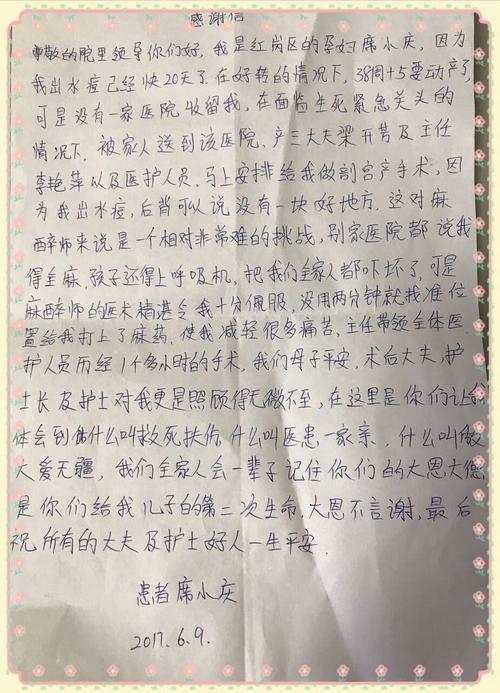 感谢信
尊敬的院里领导你们好，我是红岗区的孕妇席小庆，因为
我出水痘已经快20天了.在好转的情况下，38周+5要动产了，
可是没有一家医院收留我，在面临生死紧急关头的
情况下，被家人送到该医院.产三大夫梁开芳及主任
李艳萍以及医护人员.马上安排给我做剖宫产手术，因
为我出水痘，后背可以说没有一块好地方.这对麻
醉师来说是一个相对非常难的挑战，别家医院都说我
得全麻.孩子还得上呼吸机，把我们全家人都吓坏了，可是
麻醉师的医术精湛令我十分佩服，没用两分钟就找准位
置给我打上了麻药.使我减轻很多痛苦.主任带领全体医
护人员历经1个多小时的手术，我们母子平安.术后大夫，护
士长及护士对我更是照顾得无微不至，在这里是你们让我
体会到什么叫救死扶伤，什么叫医患一家亲，什么叫做
大爱无疆，我们全家人会一辈子记住你们的大恩大德
是你们给我儿子的第二次生命.大恩不言谢，最后
祝所有的大夫及护士好人一生平安.
患者席小庆
2017.6.9.